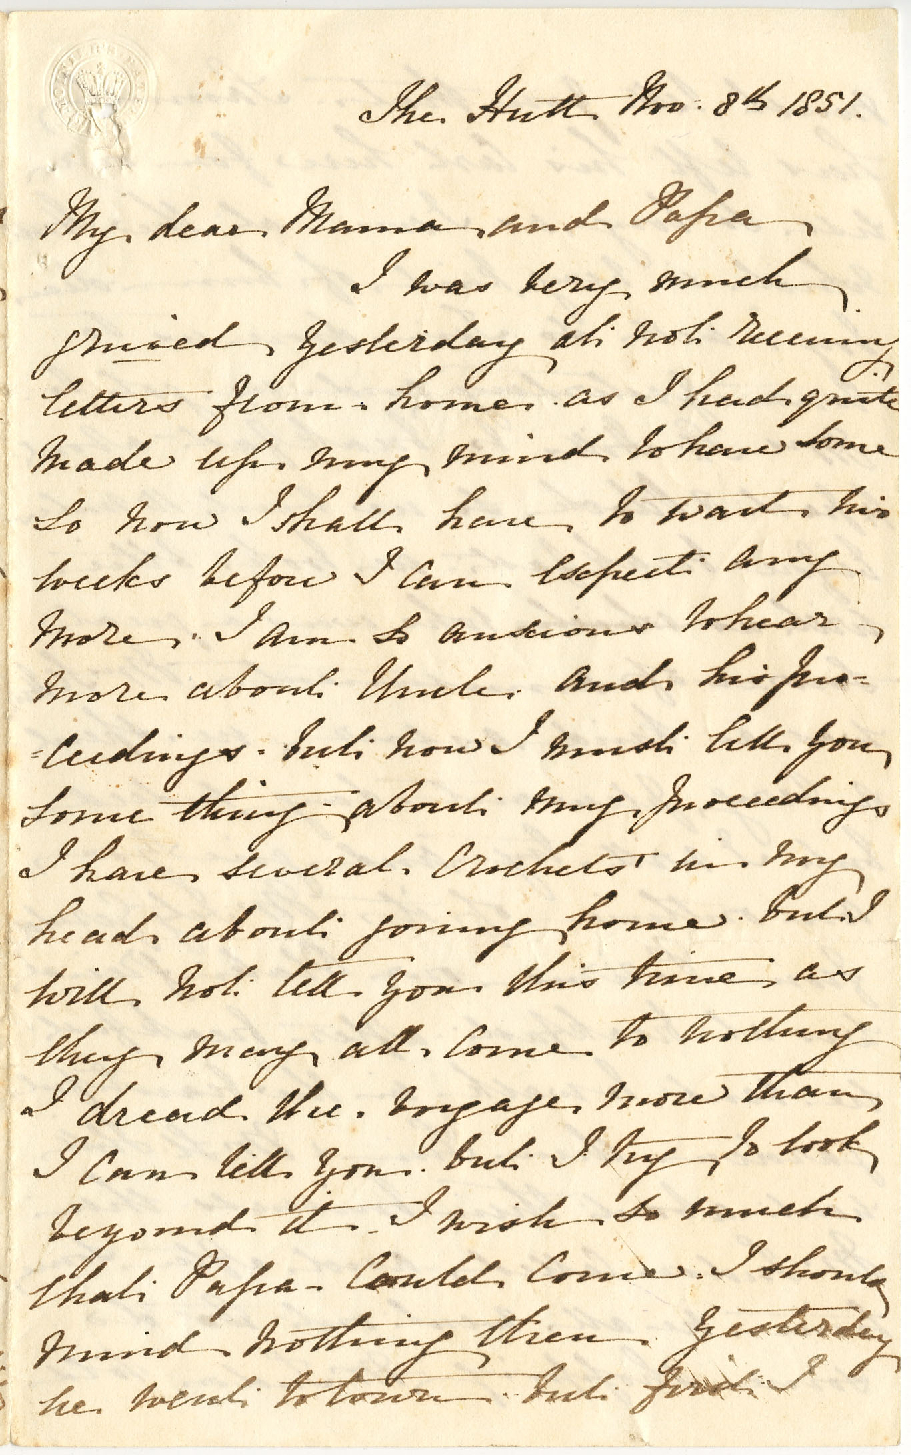 The Hutt Nov. 8th 1851.
My dear Mama and Papa
I was very much
grieved yesterday at not receiving
letters from home as I had quite
made up my mind to have some
so now I shall have to wait two
weeks before I can expect any
more. I am so anxious to hear
more about Uncle. and his pro-
-ceedings. but now I must tell you
some thing about my proceedings
I have several Crochets in my
head about going home. but I
will not tell you this time as
they may all come to nothing
I dread the voyage more than
I can tell you. but I try to look
beyond it. I wish so much
that Papa could come. I should
mind nothing then. Yesterday
he went to town but first I